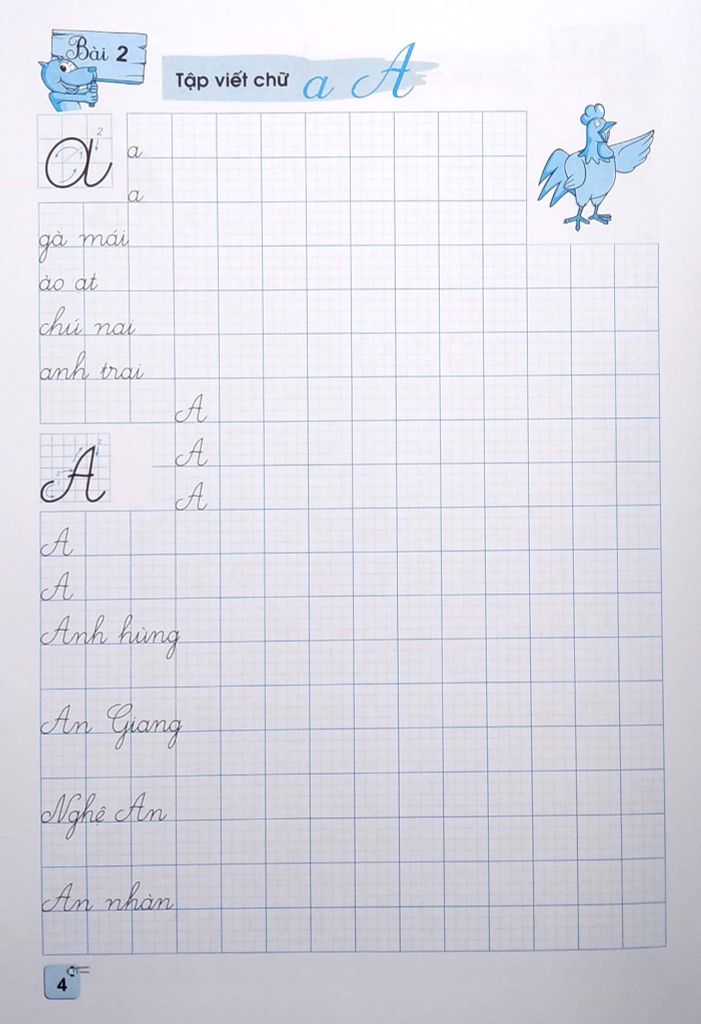 Bài 2
Tập viết chữ a A
a
a
a
gà mái
ào ạt
chú nai
anh trai
A
A
A
A
A
A
Anh hùng
An Giang
Nghệ An
An nhàn
4